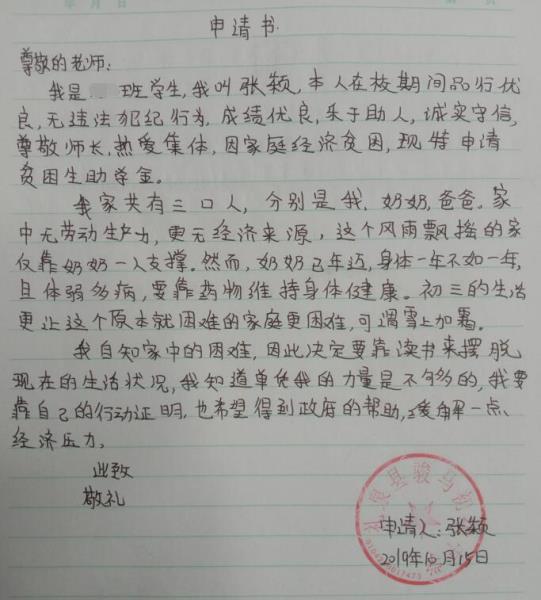 申请书
尊敬的老师:
我是 班学生,我叫张颖,本人在校期间品行优
良,无违法犯纪行为,成绩优良,乐于助人,诚实守信,
尊敬师长,热爱集体,因家庭经济贫困,现特申请
贫困生助学金。
我家共有三口人,分别是我,奶奶,爸爸。家
中无劳动生产力,更无经济来源,这个风雨飘摇的家
仅靠奶奶一人支撑。然而,奶奶已年迈,身体一年不如一年,
且体弱多病,要靠药物维持身体健康。初三的生活
更让这个原本就困难的家庭更困难,可谓雪上加霜。
我自知家中的困难,因此决定要靠读书来摆脱
现在的生活状况,我知道单凭我的力量是不够多的,我要
靠自己的行动证明,也希望得到政府的帮助,缓解一点、
经济压力。
此致
敬礼
县骏马初
申请人:张颖
2019年10月15日